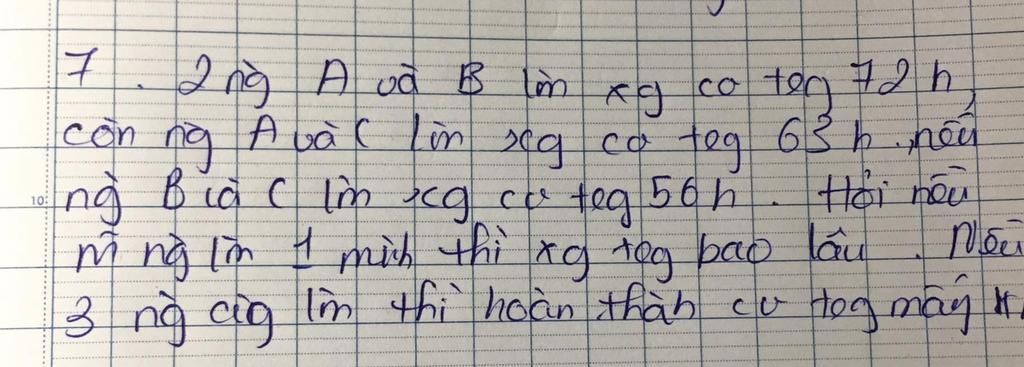 7. 2 ng̀ A và B làm xg cv tog 72 h,
còn ng̀ A và C làm xg cv tog 63 h, nếu
ng̀ B và C làm xg cv tog 56 h. Hỏi nếu
m̃ ng̀ làm 1 mình thì xg tog bao lâu. Nếu
3 ng̀ cùg làm thì hoàn thàh cv tog mấy h.